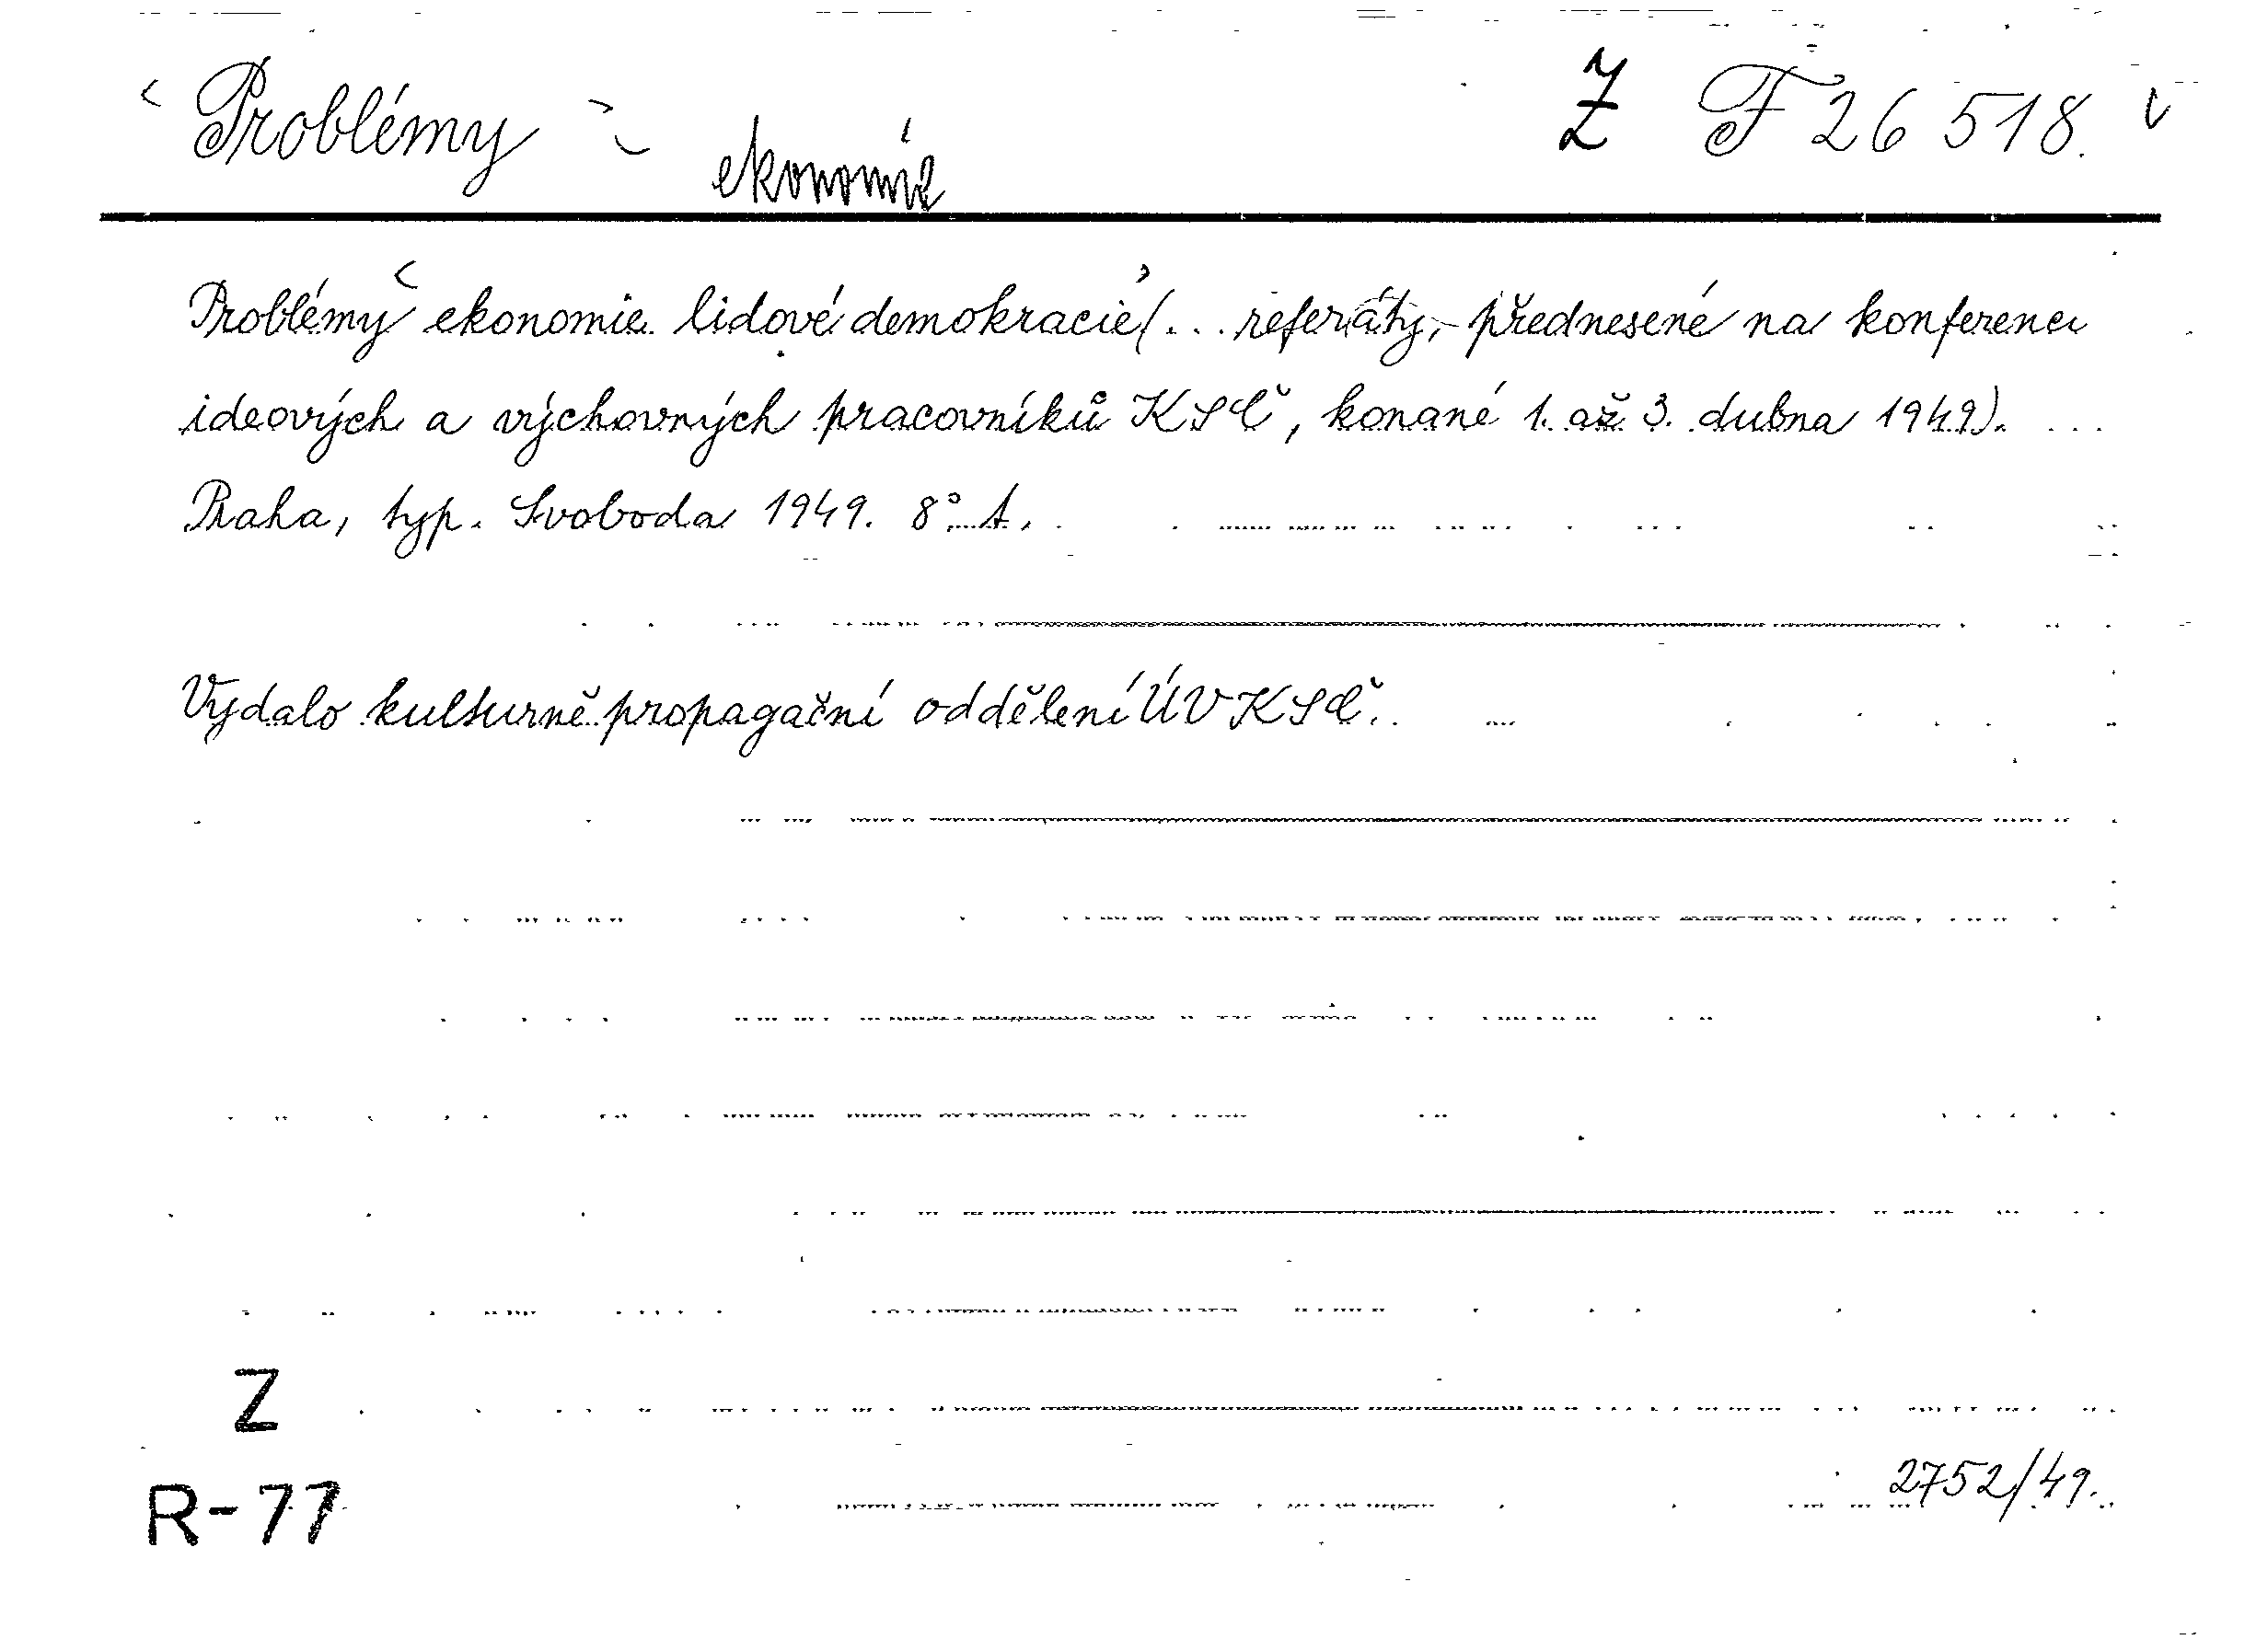 Problémy ekonomie Z F 26 518.
Problémy ekonomie lidové demokracie (... referáty, přednesené na konferenci
ideových a výchovných pracovníků KSČ, konané 1. až 3. dubna 1949). ...
Praha, typ. Svoboda 1949. 8°. A.
Vydalo kulturně propagační oddělení ÚV KSČ.
Z
2752/49.
R-77